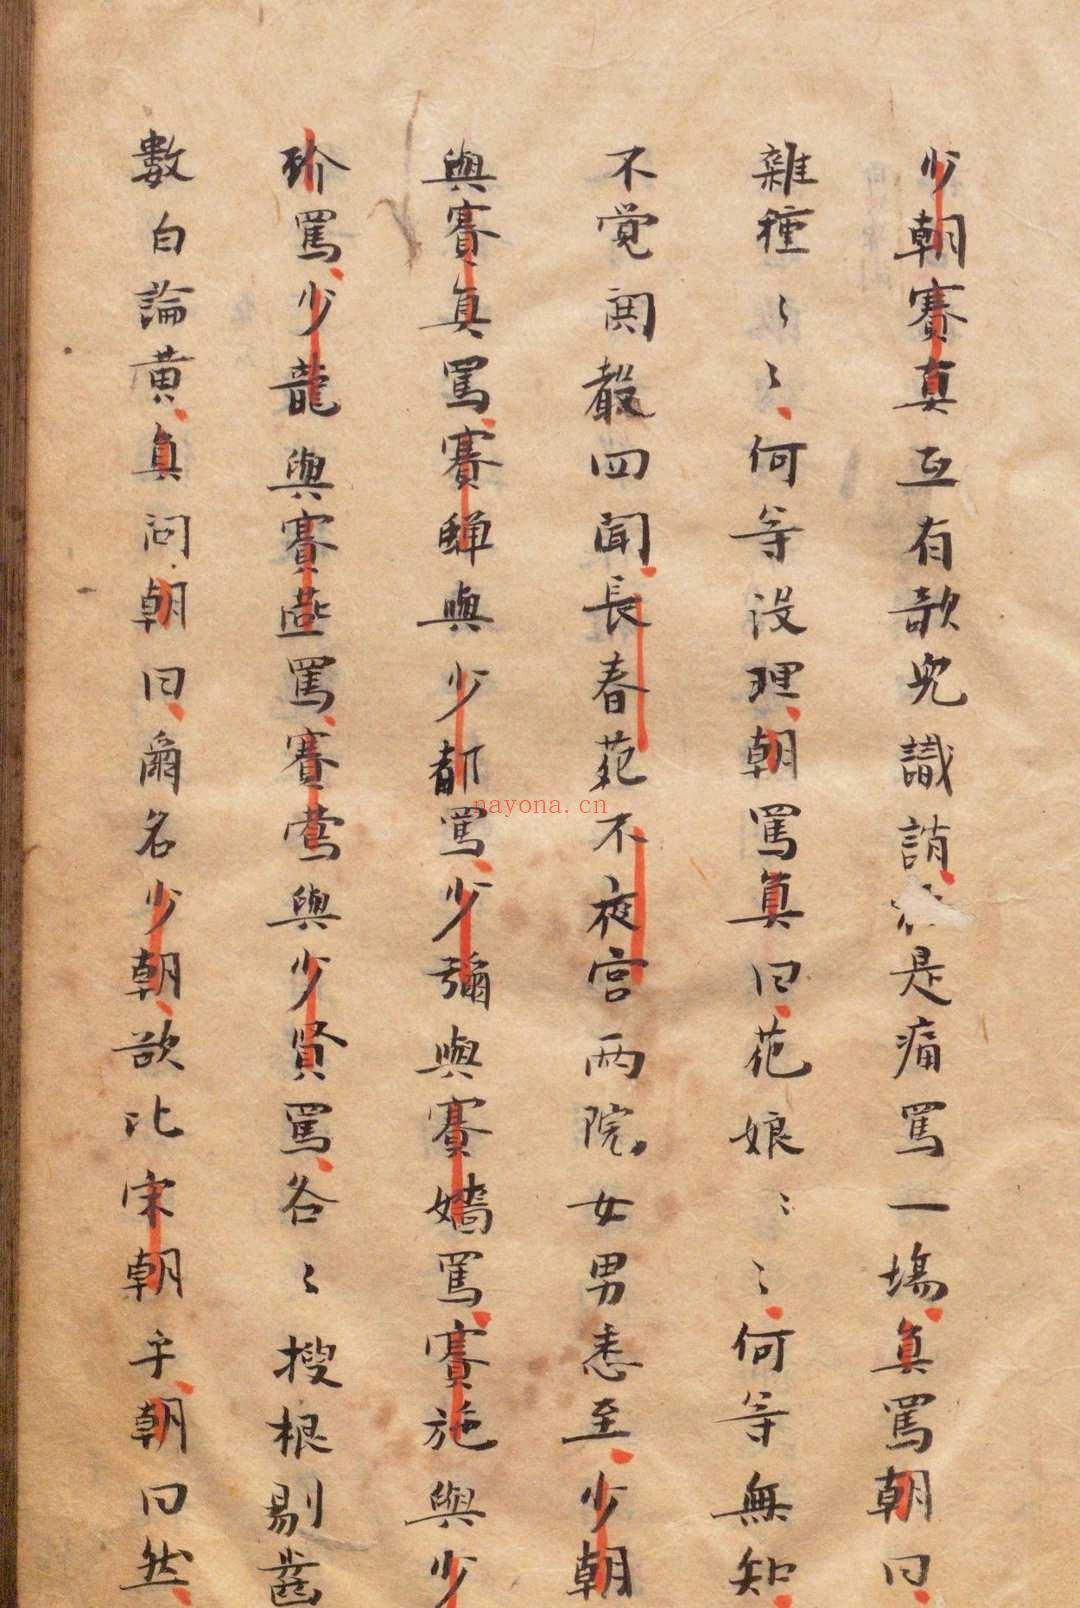 少朝賽真互有歌兒譏誚是痛罵一塲真罵朝曰
雜種〻〻何等没理朝罵真曰花娘〻〻何等無知
不覚閧聲四聞長春苑不夜宮两院女男悉至少朝
與賽真罵賽蟬與少都罵少彌與賽嬙罵賽施與少
玠罵少龍與賽燕罵賽鶯與少賢罵各〻搜根剔齒
數白論黄真問朝曰爾名少朝欲比宋朝乎朝曰然
nayona.cn